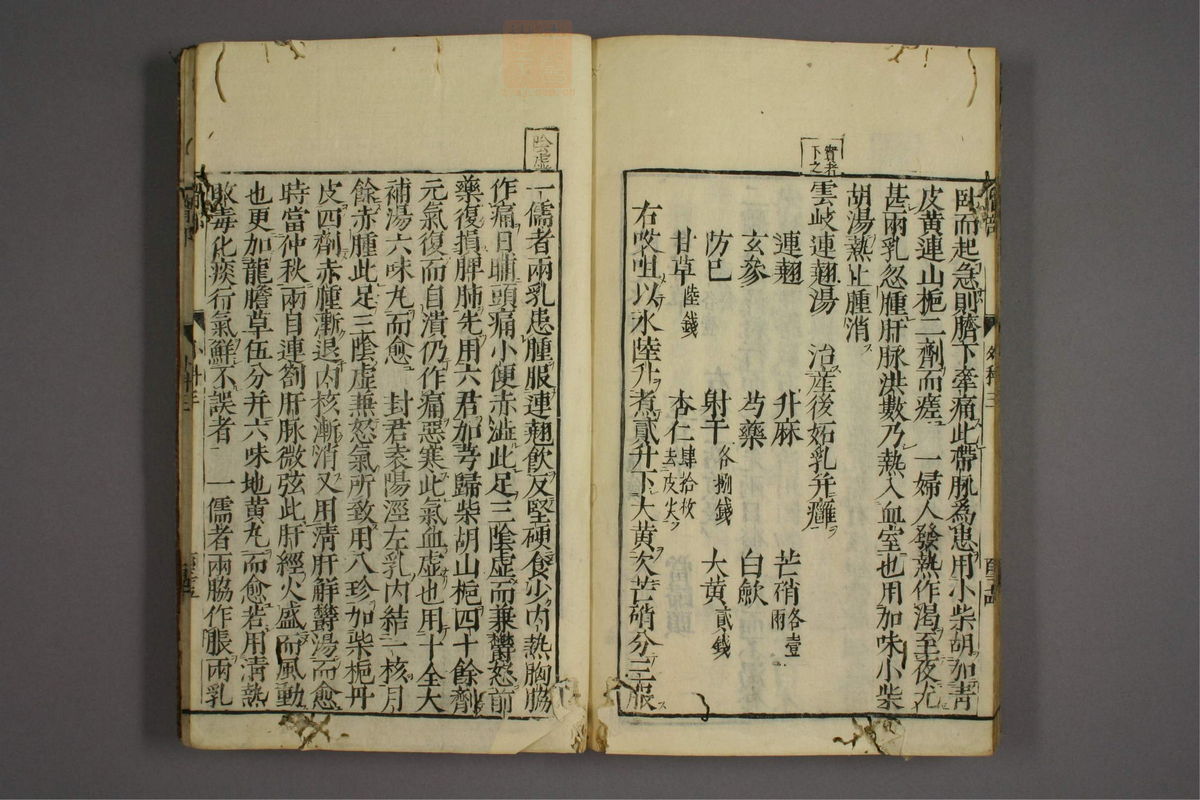 臥而起急則臍下牽痛此帶脉爲患用小柴胡加青
皮黃連山梔二劑而瘥　一婦人發熱作渴至夜尤
甚兩乳忽腫肝脉洪數乃熱入血室也用加味小柴
胡湯熱止腫消
實者下之
雲岐連翹湯　治產後妬乳并癰
連翹　升麻　芒硝各壹兩
玄參　芍藥　白斂
防巳　射干各捌錢　大黃貳錢
甘草陸錢　杏仁肆拾枚去皮尖
右㕮咀以水陸升煮貳升下大黃次芒硝分三服
陰虛
一儒者兩乳患腫服連翹飲反堅硬食少內熱胸脇
作痛日晡頭痛小便赤澁此足三陰虛而兼鬱怒前
藥復損脾肺先用六君加芎歸柴胡山梔四十餘劑
元氣復而自潰仍作痛惡寒此氣血虛也用十全大
補湯六味丸而愈　封君袁陽涇左乳內結一核月
餘赤腫此足三陰虛兼怒氣所致用八珍加柴梔丹
皮四劑赤腫漸退內核漸消又用清肝解鬱湯而愈
時當仲秋兩目連劄肝脉微弦此肝經火盛而風動
也更加龍膽草伍分并六味地黃丸而愈若用清熱
敗毒化痰行氣鮮不誤者　一儒者兩脇作脹兩乳